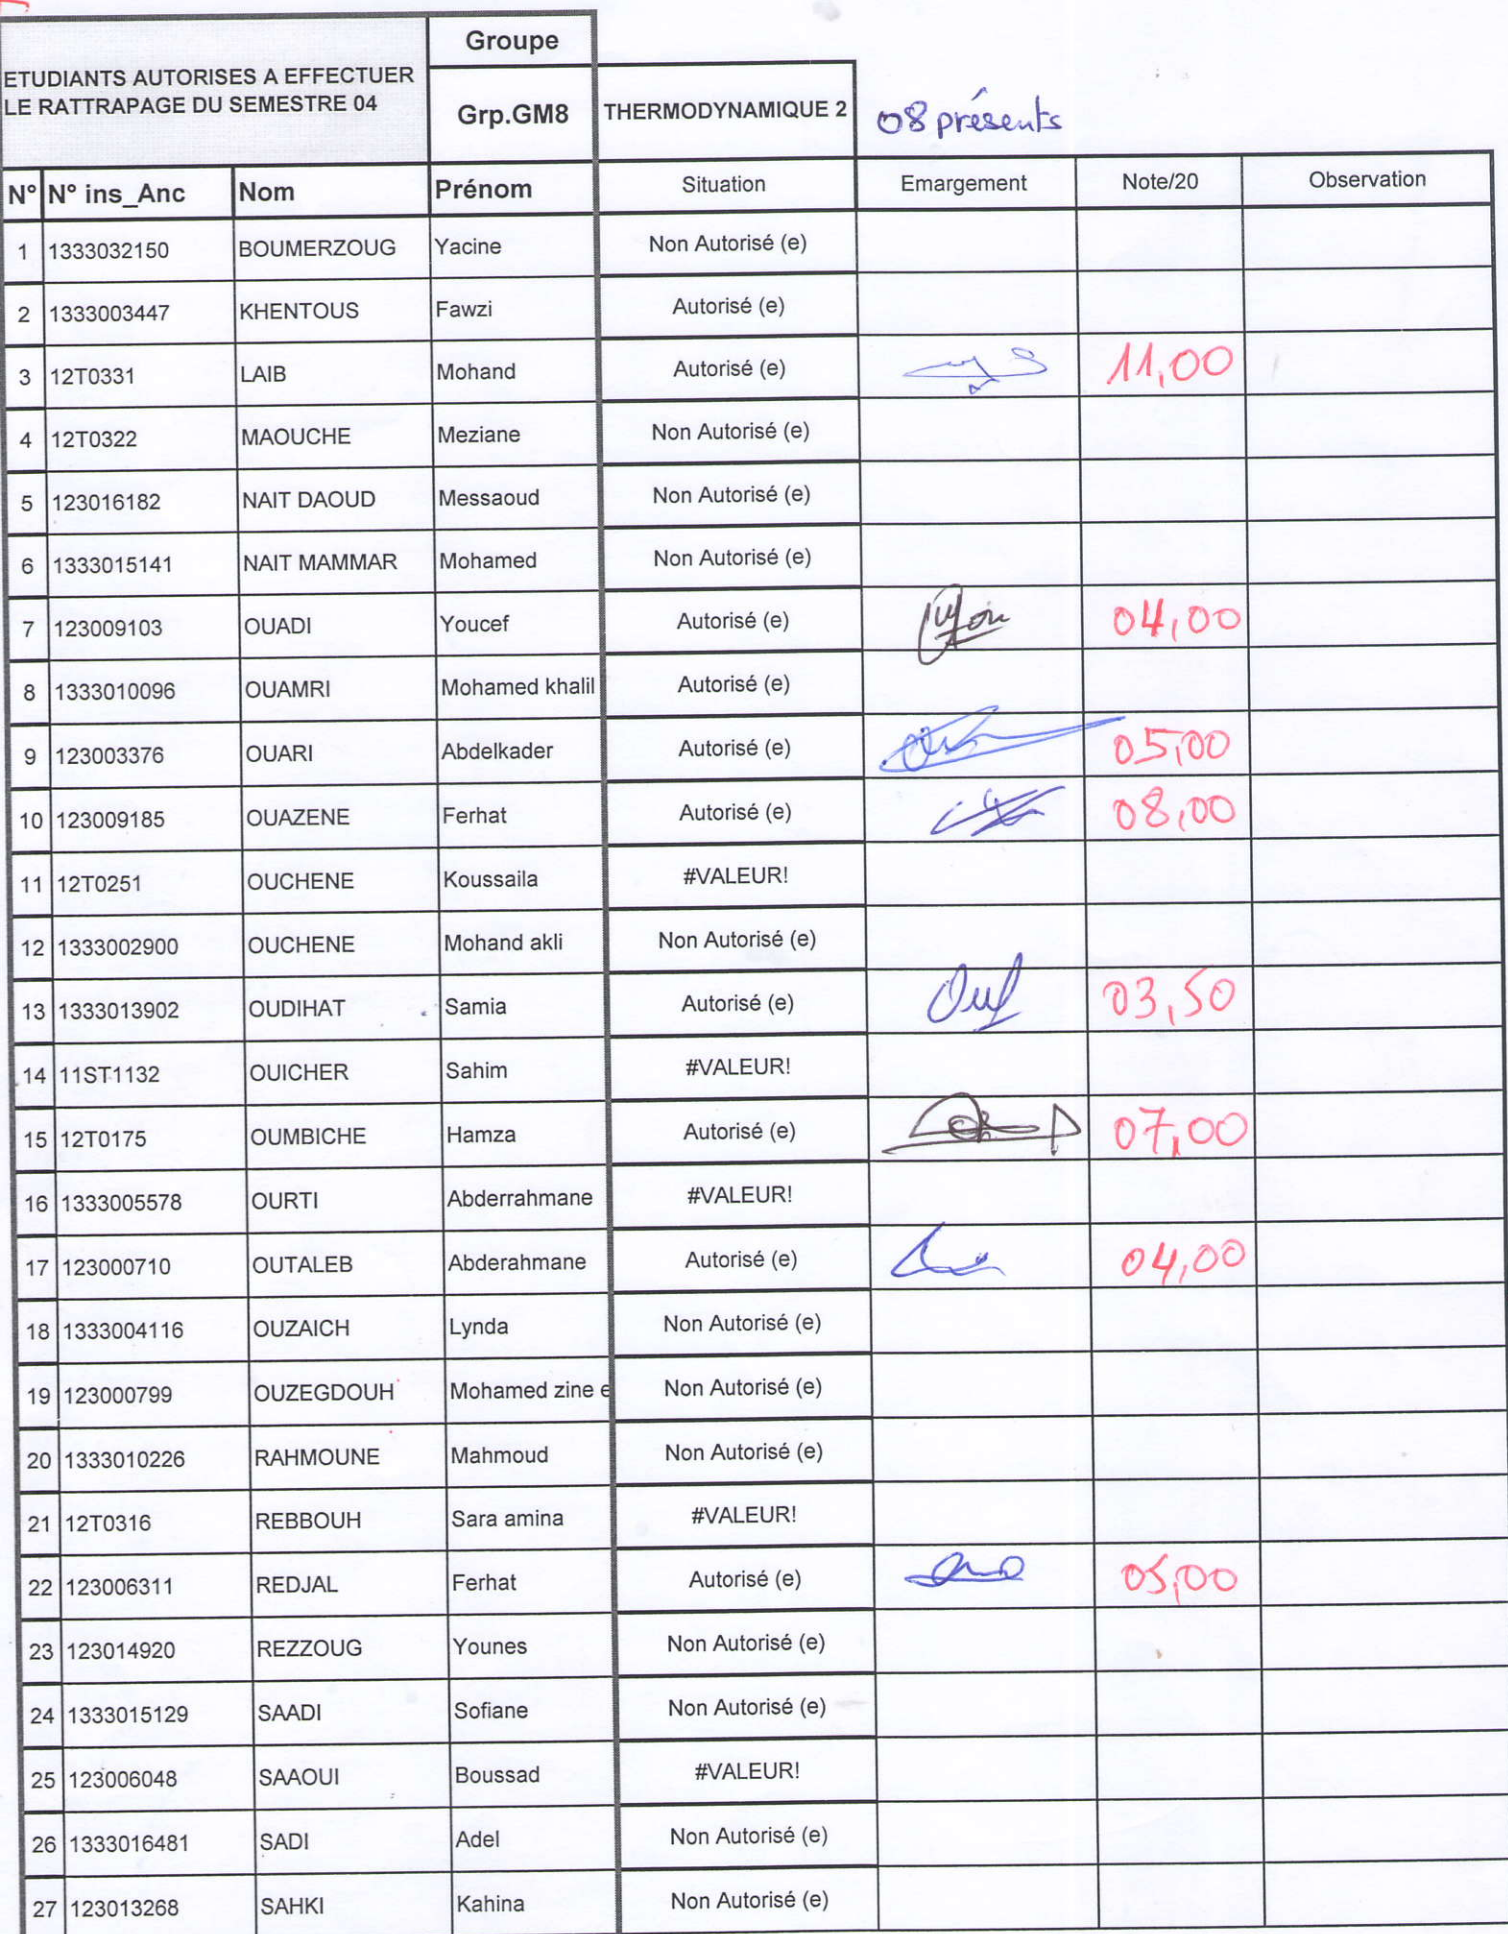 Groupe
ETUDIANTS AUTORISES A EFFECTUER
LE RATTRAPAGE DU SEMESTRE 04
Grp.GM8 THERMODYNAMIQUE 2 08 présents
N° N° ins_Anc Nom Prénom Situation Emargement Note/20 Observation
1 1333032150 BOUMERZOUG Yacine Non Autorisé (e)
2 1333003447 KHENTOUS Fawzi Autorisé (e)
3 12T0331 LAIB Mohand Autorisé (e) 11,00
4 12T0322 MAOUCHE Meziane Non Autorisé (e)
5 123016182 NAIT DAOUD Messaoud Non Autorisé (e)
6 1333015141 NAIT MAMMAR Mohamed Non Autorisé (e)
7 123009103 OUADI Youcef Autorisé (e) 04,00
8 1333010096 OUAMRI Mohamed khalil Autorisé (e)
9 123003376 OUARI Abdelkader Autorisé (e) 05,00
10 123009185 OUAZENE Ferhat Autorisé (e) 08,00
11 12T0251 OUCHENE Koussaila #VALEUR!
12 1333002900 OUCHENE Mohand akli Non Autorisé (e)
13 1333013902 OUDIHAT Samia Autorisé (e) 03,50
14 11ST1132 OUICHER Sahim #VALEUR!
15 12T0175 OUMBICHE Hamza Autorisé (e) 07,00
16 1333005578 OURTI Abderrahmane #VALEUR!
17 123000710 OUTALEB Abderahmane Autorisé (e) 04,00
18 1333004116 OUZAICH Lynda Non Autorisé (e)
19 123000799 OUZEGDOUH Mohamed zine e Non Autorisé (e)
20 1333010226 RAHMOUNE Mahmoud Non Autorisé (e)
21 12T0316 REBBOUH Sara amina #VALEUR!
22 123006311 REDJAL Ferhat Autorisé (e) 05,00
23 123014920 REZZOUG Younes Non Autorisé (e)
24 1333015129 SAADI Sofiane Non Autorisé (e)
25 123006048 SAAOUI Boussad #VALEUR!
26 1333016481 SADI Adel Non Autorisé (e)
27 123013268 SAHKI Kahina Non Autorisé (e)